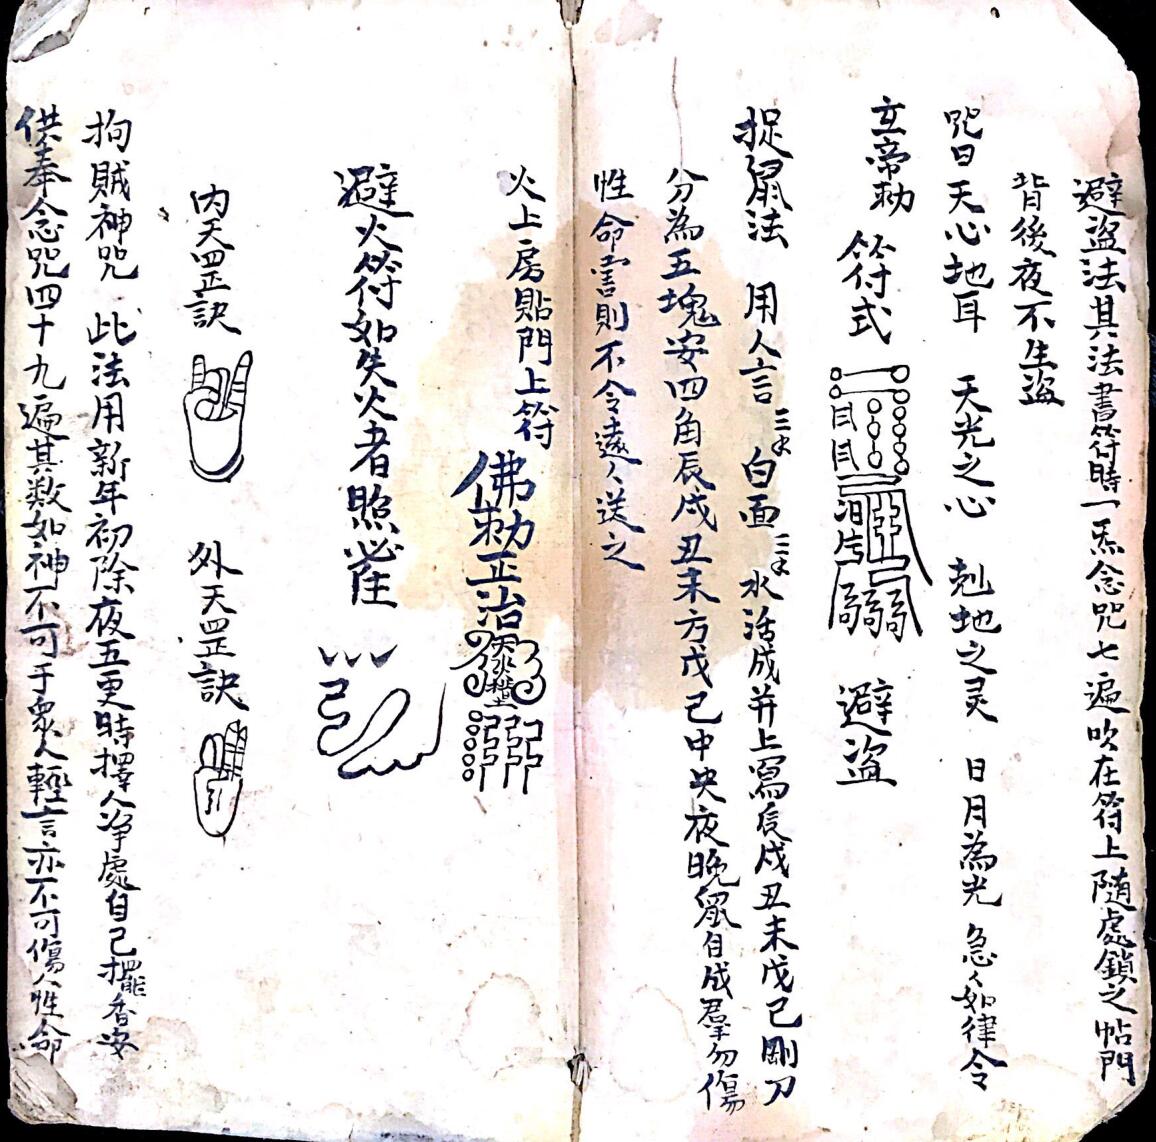 避盜法其法書符時一炁念咒七遍吹在符上隨處鎖之帖門
背後夜不生盜
咒曰天心地耳 天光之心 尅地之灵 日月為光 急〻如律令
玄帝勅 符式 避盜
捉鼠法 用人言三本 白面三本 水活成并上寫辰戌丑未戊己剛刀
分為五塊安四角辰戌丑未方戊己中央夜晚鼠自成羣勿傷
性命害則不令遠〻送之
火上房貼門上符 佛勅正治
避火符如失火者照必住
內天罡訣 外天罡訣
拘賊神咒 此法用新年初除夜五更時擇人净處自己擺香安
供奉念咒四十九遍其数如神不可于衆人輕言亦不可傷人性命